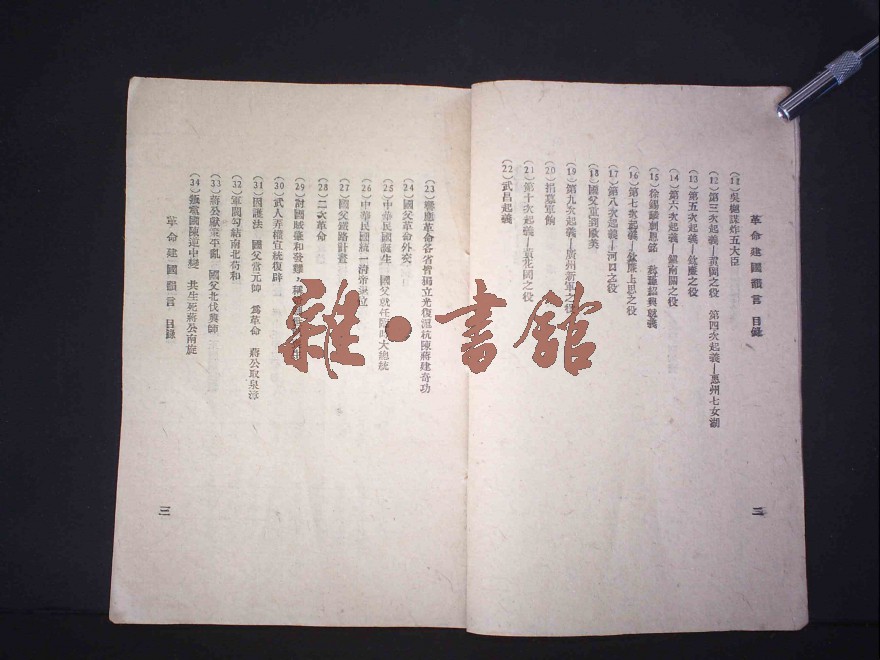 革命建國韻言 目錄
(11)吳樾謀炸五大臣
(12)第三次起義—黃岡之役 第四次起義—惠州七女湖
(13)第五次起義—欽廉之役
(14)第六次起義—鎮南關之役
(15)徐錫麟刺恩銘 秋瑾紹興就義
(16)第七次起義—欽廉上思之役
(17)第八次起義—河口之役
(18)國父重到歐美
(19)第九次起義—廣州新軍之役
(20)招募軍餉
(21)第十次起義—黃花岡之役
(22)武昌起義
二
(23)響應革命各省皆獨立光復滬杭陳蔣建奇功
(24)國父革命外交
(25)中華民國誕生 國父就任臨時大總統
(26)中華民國統一清帝退位
(27)國父鐵路計畫
(28)二次革命
(29)討國賊肇和發難,
(30)武人弄權宣統復辟
(31)因護法 國父當元帥 爲革命 蔣公取泉漳
(32)軍閥勾結南北苟和
(33)蔣公獻策平亂 國父北伐興師
(34)叛黨國陳逆中變 共生死蔣公南旋
革命建國韻言 目錄
三
雜·書館